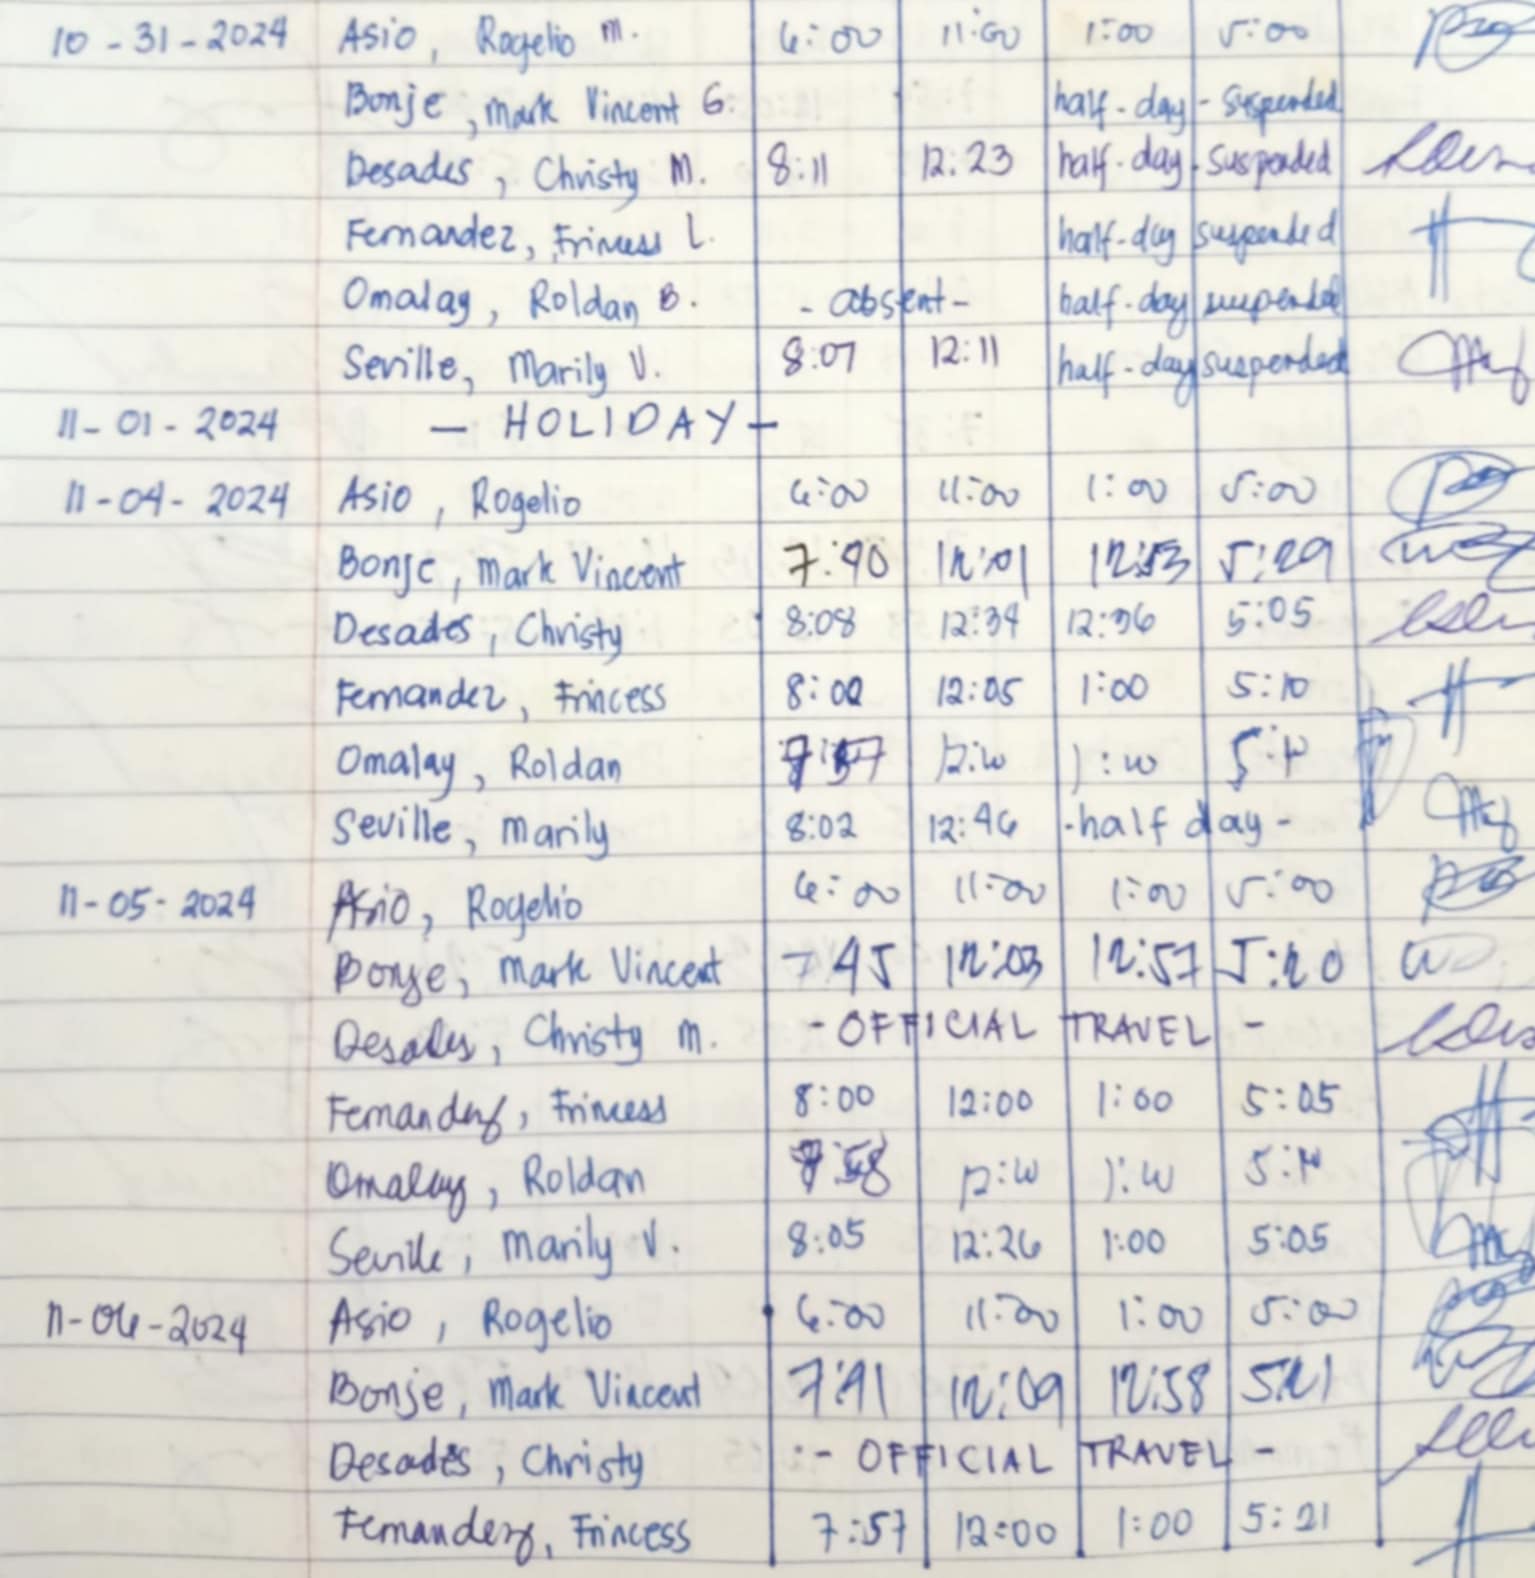 10-31-2024 Asio, Rogelio M. 6:00 11:00 1:00 5:00
Bonje, Mark Vincent G. half-day - suspended
Desades, Christy M. 8:11 12:23 half-day - suspended
Fernandez, Frincess L. half-day suspended
Omalay, Roldan B. - absent - half-day suspended
Seville, Marily V. 8:07 12:11 half-day suspended
11-01-2024 - HOLIDAY -
11-04-2024 Asio, Rogelio 6:00 11:00 1:00 5:00
Bonje, Mark Vincent 7:40 12:01 12:53 5:29
Desades, Christy 8:08 12:34 12:36 5:05
Fernandez, Frincess 8:00 12:05 1:00 5:10
Omalay, Roldan 7:57 12:00 1:00
Seville, Marily 8:02 12:46 -half day-
11-05-2024 Asio, Rogelio 6:00 11:00 1:00 5:00
Bonje, Mark Vincent 7:45 12:03 12:57 5:20
Desades, Christy M. - OFFICIAL TRAVEL -
Fernandez, Frincess 8:00 12:00 1:00 5:05
Omalay, Roldan 7:58 12:00 1:00
Seville, Marily V. 8:05 12:26 1:00 5:05
11-06-2024 Asio, Rogelio 6:00 11:00 1:00 5:00
Bonje, Mark Vincent 7:41 12:09 12:58 5:21
Desades, Christy - OFFICIAL TRAVEL -
Fernandez, Frincess 7:57 12:00 1:00 5:21